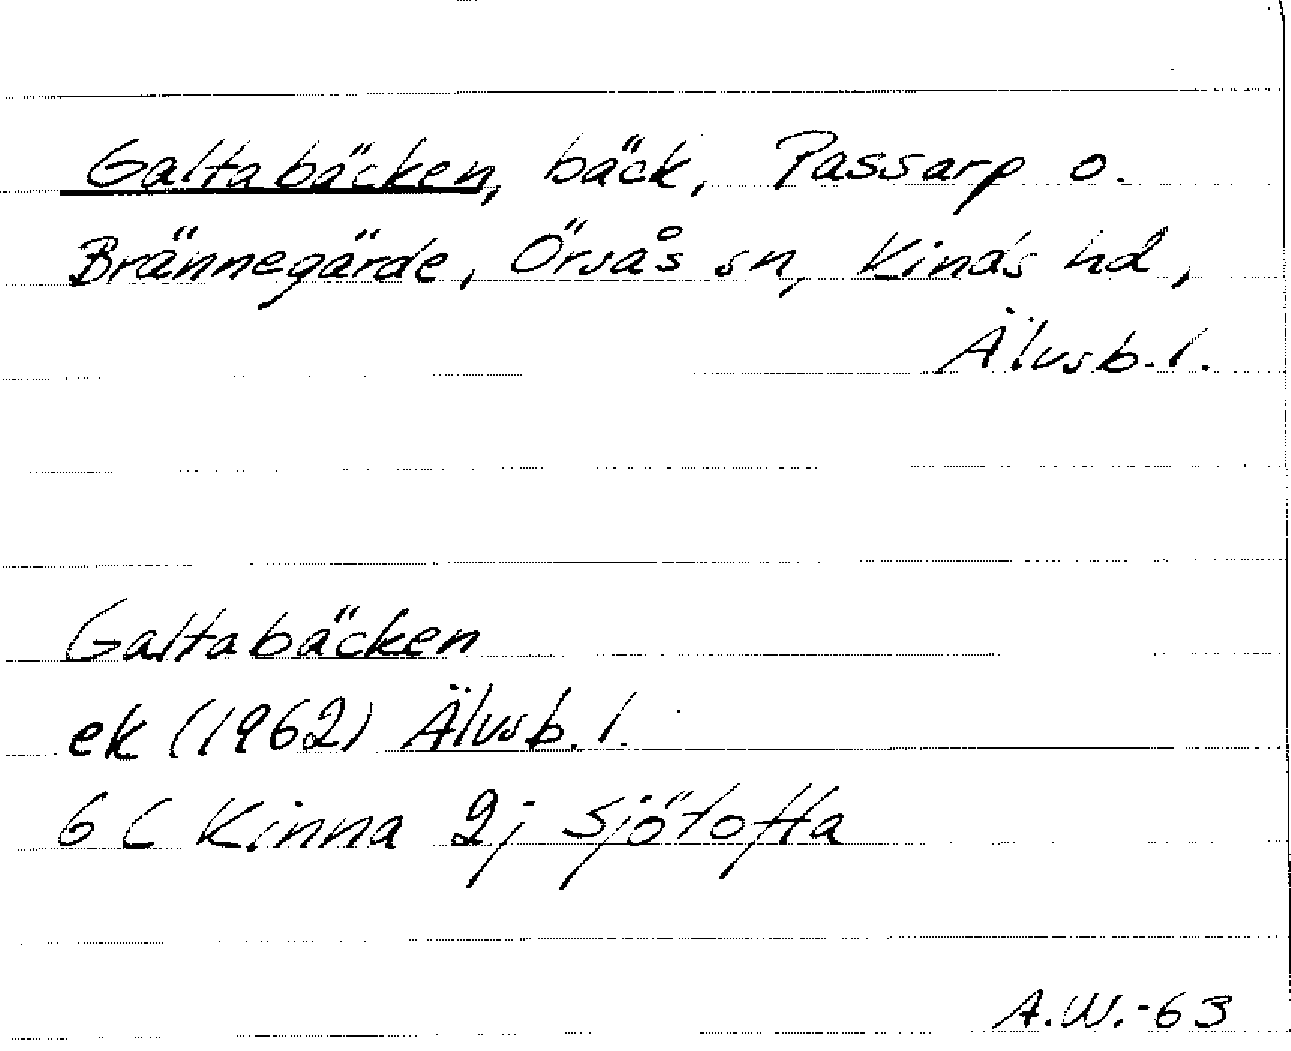 Galtabäcken, bäck, Passarp o.
Brännegärde, Örsås sn, Kinds hd,
Älvsb. l.
Galtabäcken
ek (1962) Älvsb. l.
6 C Kinna 2j Sjötofta
A.W.-63